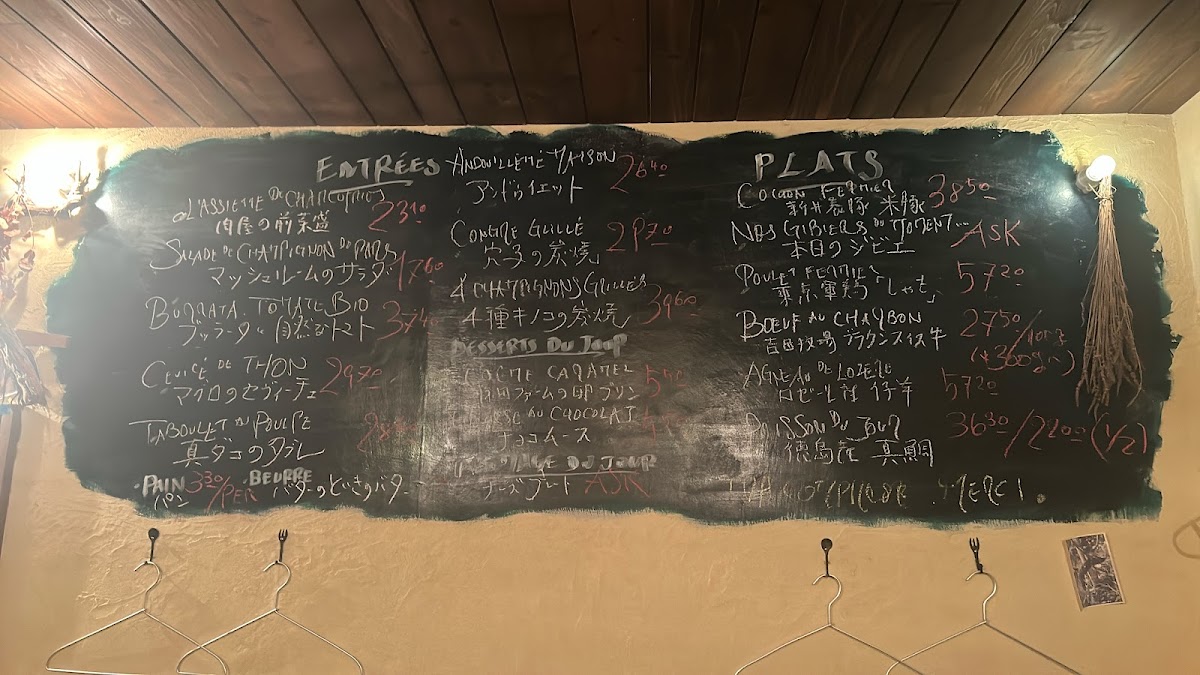 ENTRÉES
L'ASSIETTE DE CHARCUTIER
肉屋の前菜盛 2310
SALADE DE CHAMPIGNON DE PARIS
マッシュルームのサラダ 1760
BURRATA TOMATE BIO
ブッラータと自然なトマト 3740
CEVICÉ DE THON
マグロのセヴィーチェ 2970
TABOULET DU POULPE
真ダコのタブレ
PAIN 330/PER
パン
BEURRE
バターのといきのバター
ANDOUILLETTE MAISON
アンドゥイエット 2640
CONGRE GRILLÉ
穴子の炭焼 2970
4 CHAMPIGNONS GRILLÉS
4種キノコの炭焼 3960
DESSERTS DU JOUR
CRÈME CARAMEL
ファームの卵プリン
AU CHOCOLAT
チョコムース
DU JOUR
チーズプレート ASK
PLATS
COCHON FERMIER
新井養豚 米豚 3850
NOS GIBIERS DU MOMENT...
本日のジビエ ASK
POULET FERMIER
東京軍鶏「しゃも」 5720
BOEUF AU CHARBON
吉田牧場 ブラウンスイス牛 2750/100g
(300g〜)
AGNEAU DE LOZÈRE
ロゼール産 仔羊 5720
POISSON DU JOUR
徳島産 真鯛 3630/2200 (1/2)
MERCI